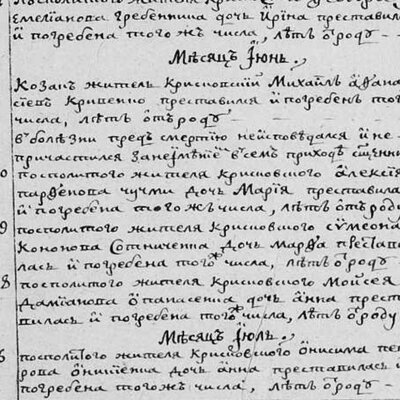 Емелїанова Гребенника дочь Ірїна преставил
и погребена того жъ числа, лѣтъ ѿ роду
Мѣсяцъ Іюнь.
Козакъ житель Крисковскїй Михаилъ
преставился и погребенъ того
числа, лѣтъ ѿ роду
въ болѣзни предъ смертїю неисповѣдался и не
причастился въ семъ приходѣ
посполитого жителя Крисковского Алексїя
Парѳенова Чучми дочь Марїя преставила
и погребена того жъ числа, лѣтъ ѿ роду
9 посполитого жителя Крисковского Сѷмеона
Кононова Сотниченка дочь Марѳа преста
лась и погребена того числа, лѣтъ ѿ роду
8 посполитого жителя Крисковского Мойсея
Дамїанова Опанасенка дочь Анна прест
вилась и погребена того числа, лѣтъ ѿ роду
Мѣсяцъ Іюль.
посполитого жителя Крисковского Онисима Пет
рова дочь Анна преставилась и
погребена того жъ числа, лѣтъ ѿ роду